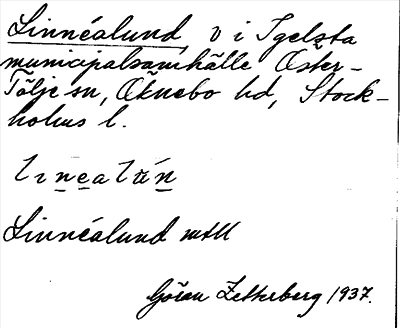 Linnéalund, v i Igelsta
municipalsamhälle Öster-
Tälje sn, Öknebo hd, Stock-
holms l.
Linnéalund
Göran Zetterberg 1937.